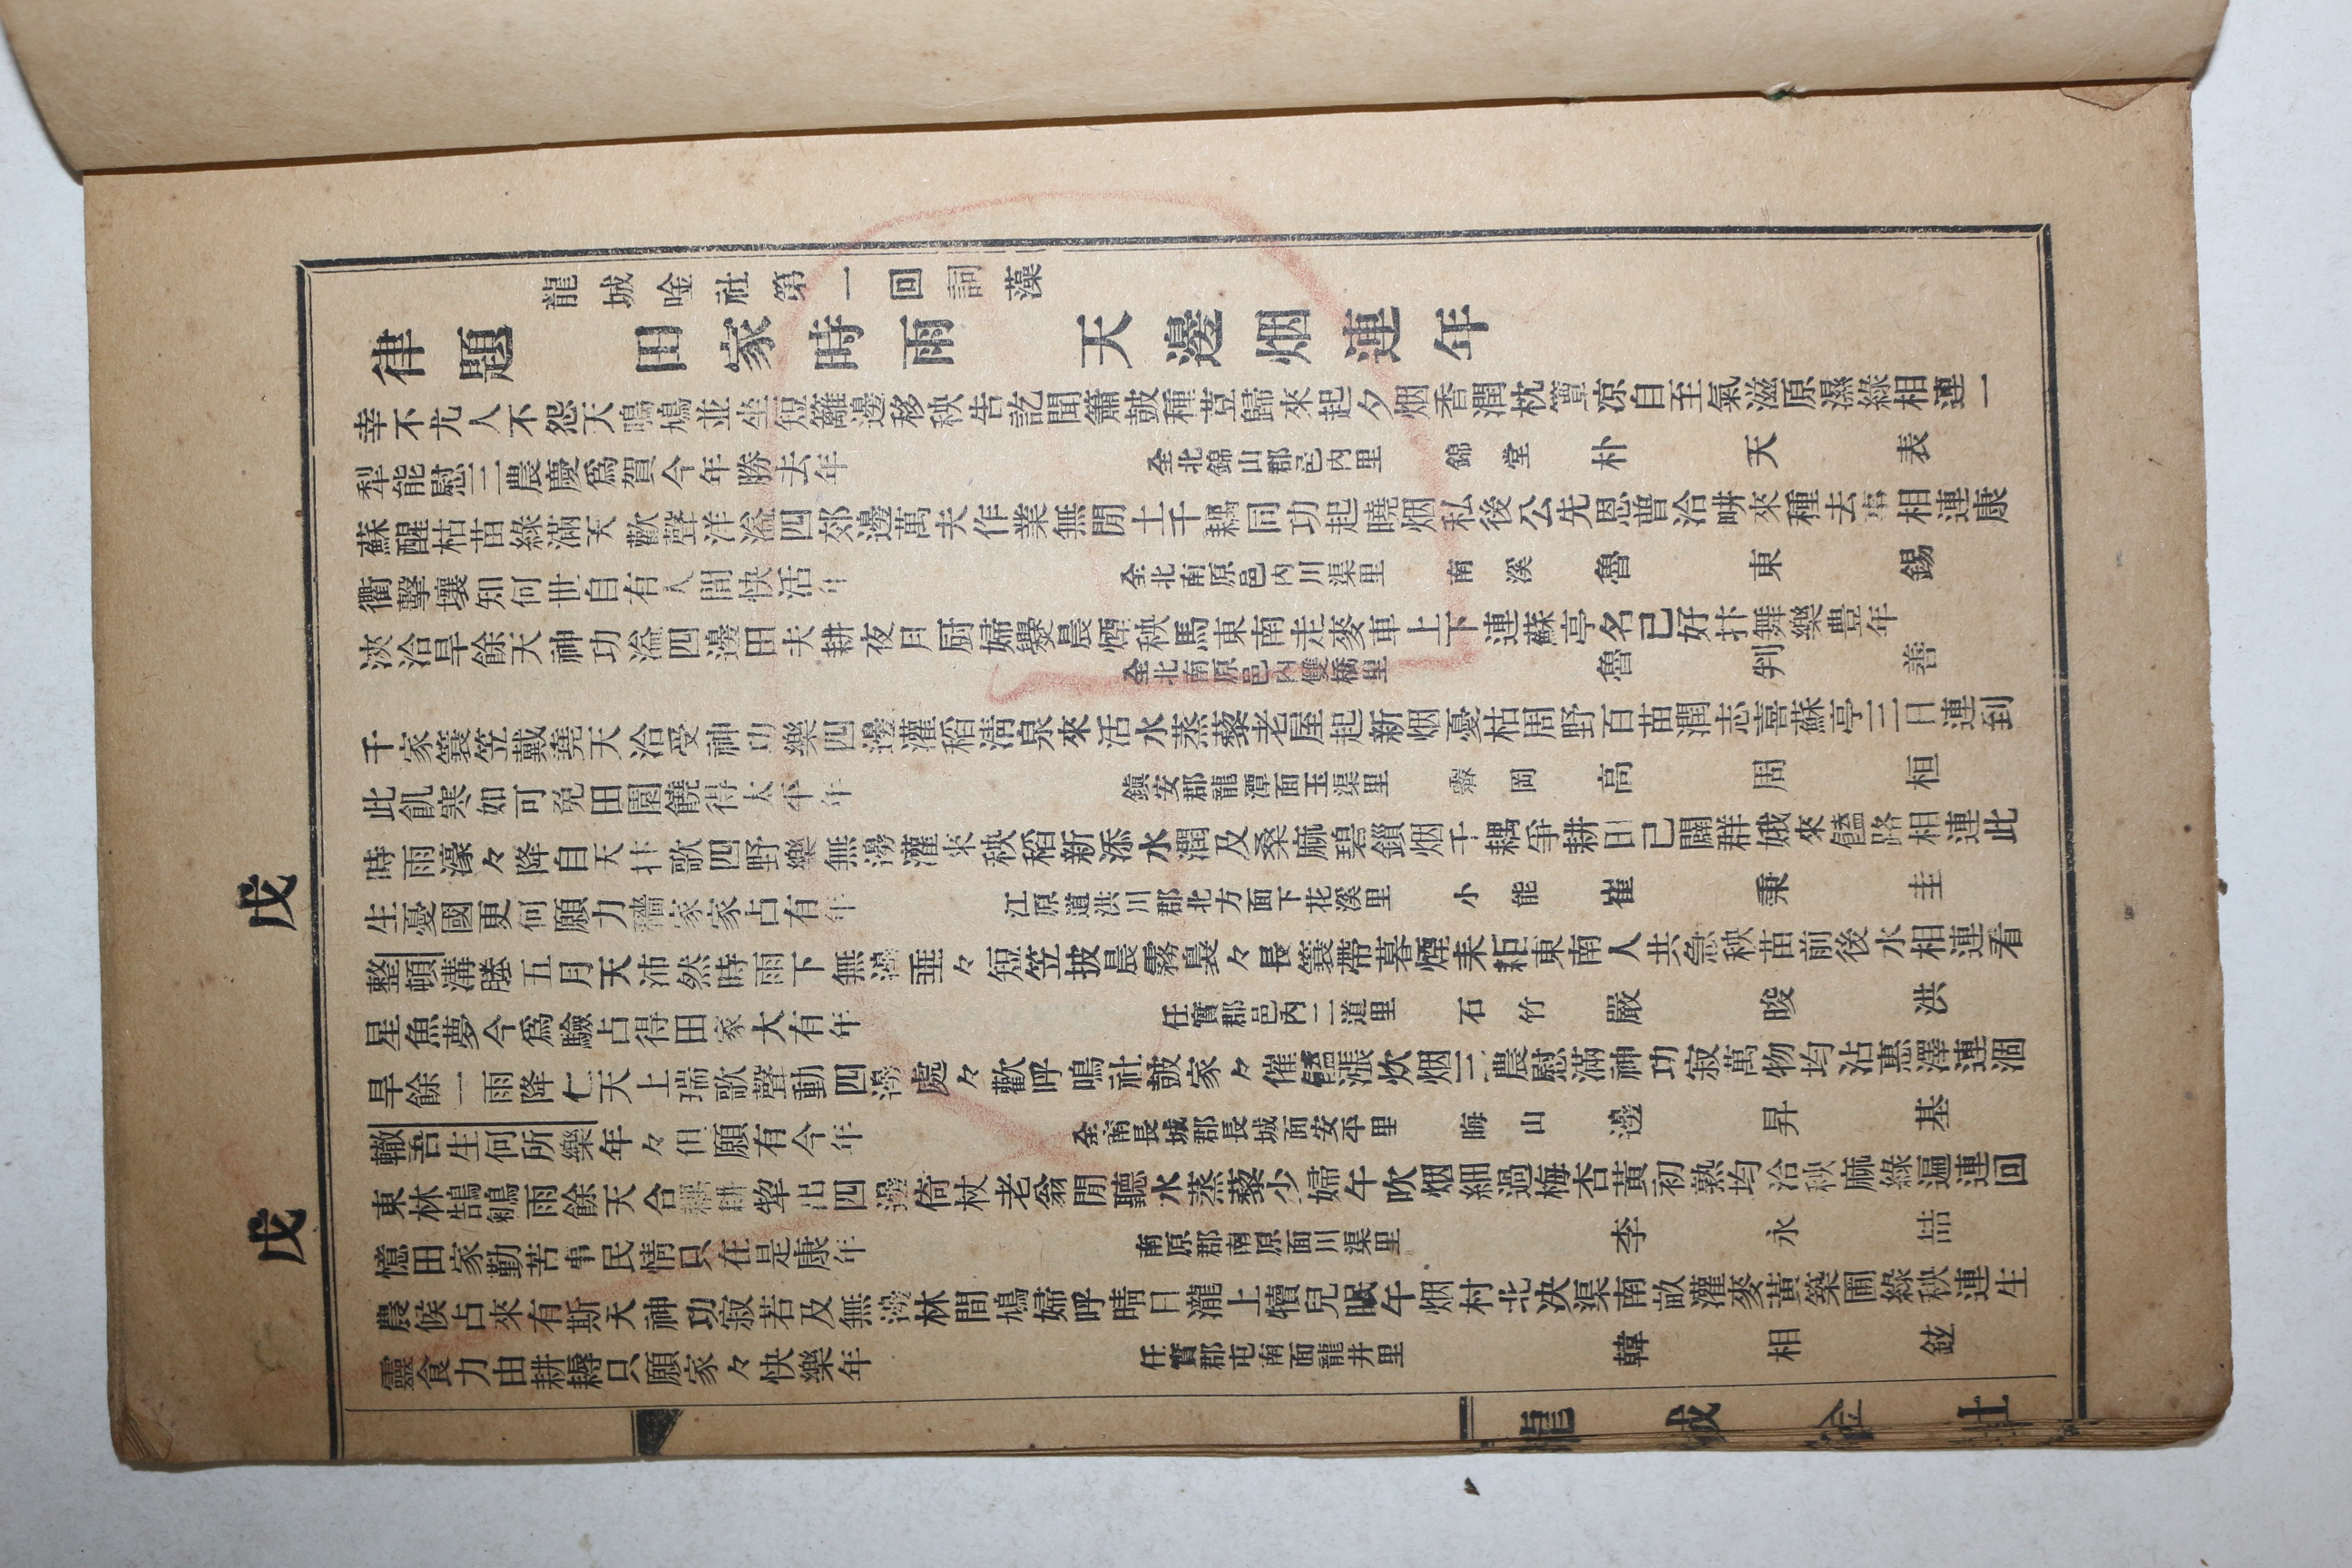 戊
戊
龍城唫社第一回詞藻
律題 田家時雨 天邊烟連年
幸不尤人不怨天鳴鳩並坐短籬邊移秧告訖聞簫皷種荳歸來起夕烟香潤枕簟凉自至氣滋原濕綠相連一
犁能慰三農慶爲賀今年勝去年 全北錦山郡邑內里 錦堂 朴天表
蘇醒枯苗綠滿天歡聲洋溢四郊邊萬夫作業無閒土千耦同功起曉烟私後公先恩普洽畊來種去事相連康
衢擊壤知何世自有人間快活年 全北南原邑內川渠里 南溪 魯東錫
浹洽旱餘天神功溢四邊田夫耕夜月厨婦爨晨煙秧馬東南走麥車上下連蘇亭名已好抃舞樂豊年
全北南原邑內雙橋里 魯判善
千家簑笠戴堯天洽受神功樂四邊灌稻淸泉來活水蒸藜老屋起新烟憂枯周野百苗潤志喜蘇亭三日連到
此飢寒如可免田園饒得太平年 鎭安郡龍潭面玉渠里 霽岡 高周桓
時雨濠々降自天抃歌四野樂無邊灌來秧稻新添水潤及桑麻碧鎖烟千耦爭耕田已闢群娥來饁路相連此
生憂國更何願力穡家家占有年 江原道洪川郡北方面下花溪里 小能 崔秉圭
整頓溝塍五月天沛然時雨下無邊垂々短笠披晨霧裊々長簑帶暮煙耒耟東南人共急秧苗前後水相連看
星魚夢今爲驗占得田家大有年 任實郡邑內二道里 石竹 嚴晙洪
旱餘一雨降仁天上瑞歌聲動四邊處々歡呼鳴社皷家々催饁漲炊烟三農慰滿神功寂萬物均沾惠澤連涸
轍吾生何所樂年々但願有今年 全南長城郡長城面安平里 晦山 邊昇基
東林鵠鵴雨餘天合耦耕犂出四邊倚杖老翁閒聽水蒸藜少婦午吹烟細過梅杏黃初熟均洽秧麻綠遍連回
憶田家勤苦事民情只在是康年 南原郡南原面川渠里 李永喆
農候占來有斯天神功寂若及無邊林間鳩婦呼晴日瀧上犢兒眠午烟村北决渠南畝灌麥黃築圃綠秧連生
靈食力由耕耨只願家々快樂年 任實郡屯南面龍井里 韓相鉉
龍城唫社